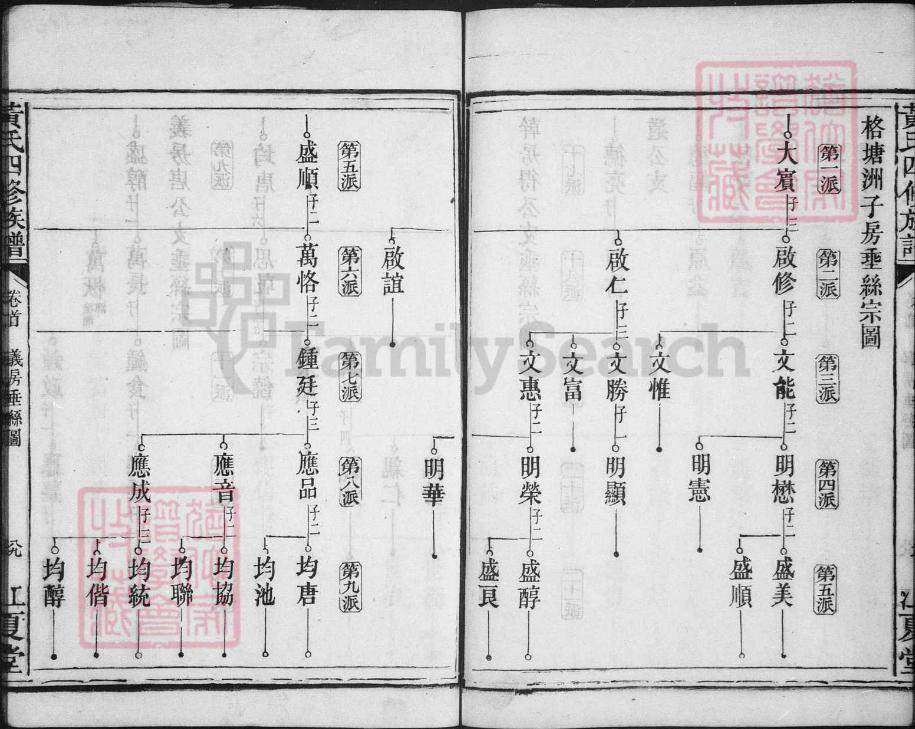 格塘洲子房垂絲宗圖
第一派
大賓
子三
第二派
啟修
子二
啟仁
子三
啟誼
第三派
文能
子二
文惟
文勝
子一
文富
文惠
子二
第四派
明懋
子二
明憲
明顯
明榮
子二
明華
第五派
盛美
盛順
盛醇
盛良
黃氏四修族譜
江夏堂
第五派
盛順
子二
第六派
萬恪
子二
第七派
鍾廷
子三
第八派
應品
子二
應音
子二
應成
子三
第九派
均唐
均池
均協
均聯
均統
均偕
均醇
黃氏四修族譜
卷首
義房垂絲圖
江夏堂
FamilySearch